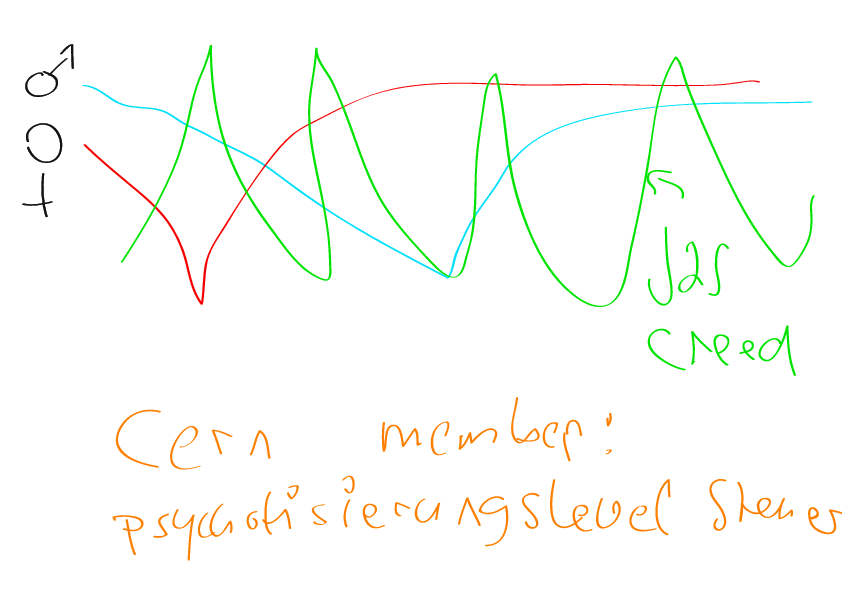 ♂
♀
Jas
creed
Cern member:
psychotisierungslevel